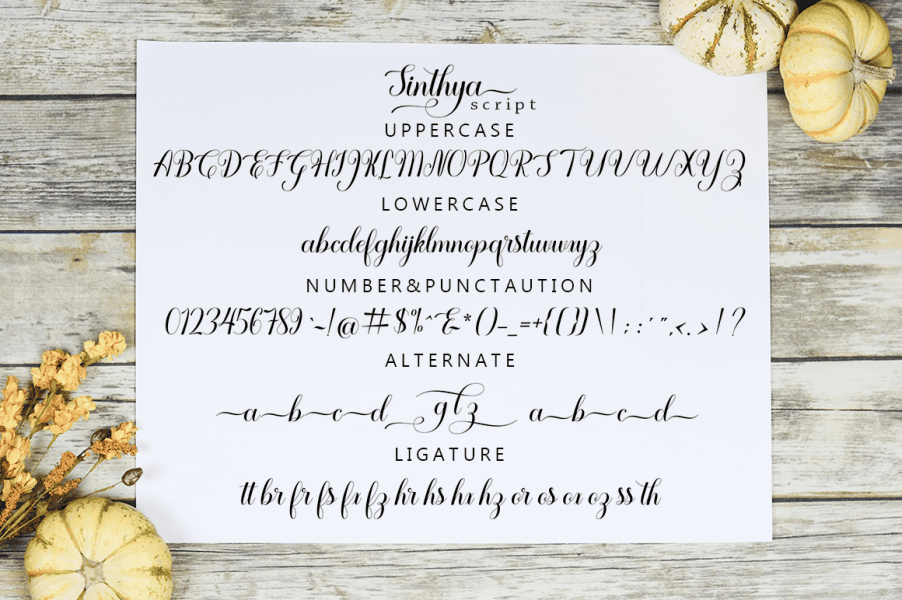 Sinthya
script
UPPERCASE
ABCDEFGHIJKLMNOPQRSTUVWXYZ
LOWERCASE
abcdefghijklmnopqrstuvwxyz
NUMBER&PUNCTAUTION
0123456789`~!@#$%^&*()-_=+{[(])\|;:'",<.>/?
ALTERNATE
a b c d g l z a b c d
LIGATURE
tt br fr fs fi fz hr hs hi hz or os oi oz ss th